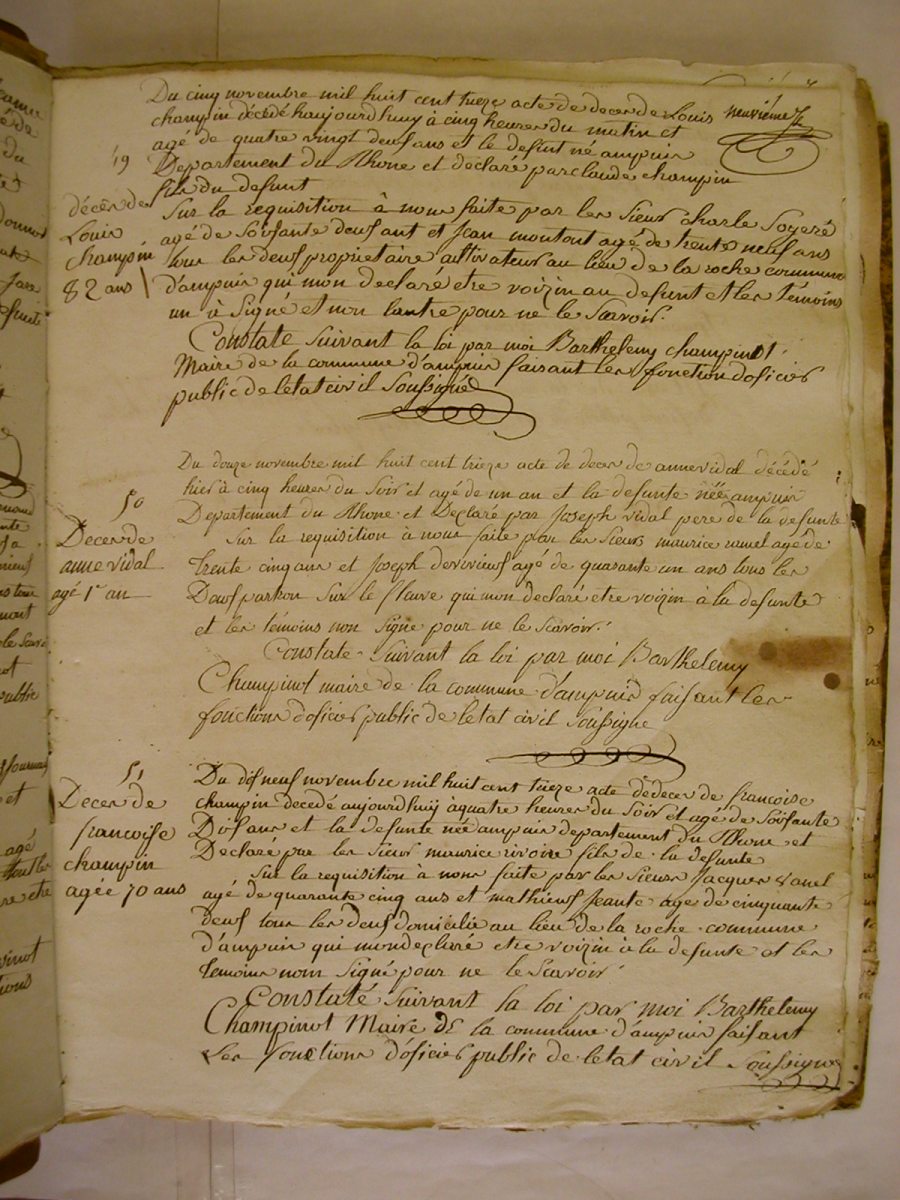 neuvième
Du cinq novembre mil huit cent treze acte de deces de Louis
champin décédé haujourdhuy à cinq heures du matin et
agé de quatre vingt deus ans et le defunt né ampuis
Departement du Rhone et declaré par claude champin
fils du defunt
49
décés de
Louis
champin
82 ans
Sur la requisition à nous faite par les sieurs charle Soyeré
agé de Soissante deus ant et Jean montout agé de trente neuf ans
tous les deus propriétaire cultivateur au lieu de la roche commune
d'ampuis qui mon declaré etre voizin au defunt et les témoins
un à Signé et non lautre pour ne le Scavoir.
Constate Suivant la loi par moi Barthelemy champinot
Maire de la commune d'ampuis faisant les fonction doficier
public de letat civil Soussigné
Du douze novembre mil huit cent treze acte de deces de anne vidal décédé
hier à cinq heures du Soir et agé de un an et la defunte née ampuis
Departement du Rhone et Declaré par Joseph vidal pere de la defunte
50
Deces de
anne vidal
agé 1r an
Sur la requisition à nous faite par les Sieurs maurice agé de
trente cinq ans et Joseph agé de quarante un ans tous les
Deus patron Sur le fleuve qui mon declaré etre voizin à la defunte
et les témoins non Signe pour ne le Scavoir.
Constate Suivant la loi par moi Barthelemy
Champinot maire de la commune d'ampuis faisant les
fonctions doficier public de letat civil Soussigne
51
Deces de
francoise
champin
agée 70 ans
Du dis neuf novembre mil huit cent treze acte de deces de francoise
champin decedé aujourdhuy à quatre heures du Soir et agé de Soissante
Dis ans et la defunte née ampuis departement du Rhone et
Declaré par les Sieur maurice ivoire fils de la defunte
Sur la requisition à nous faite par les Sieurs Jacques
agé de quarante cinq ans et mathieus Jeaute age de cinquante
deus tous les deus domicilié au lieu de la roche commune
d'ampuis qui mon declaré etre voizin à la defunte et les
temoins nom Signé pour ne le Scavoir.
Constaté Suivant la loi par moi Barthelemy
Champinot Maire de la commune d'ampuis faisant
Les fonctions d'oficier public de letat civil Soussigne